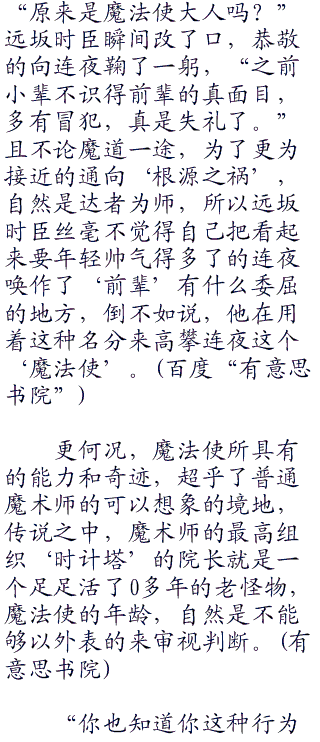 “原来是魔法使大人吗？”
远坂时臣瞬间改了口，恭敬
的向连夜鞠了一躬，“之前
小辈不识得前辈的真面目，
多有冒犯，真是失礼了。”
且不论魔道一途，为了更为
接近的通向‘根源之祸’，
自然是达者为师，所以远坂
时臣丝毫不觉得自己把看起
来要年轻帅气得多了的连夜
唤作了‘前辈’有什么委屈
的地方，倒不如说，他在用
着这种名分来高攀连夜这个
‘魔法使’。(百度“有意思
书院”)
更何况，魔法使所具有
的能力和奇迹，超乎了普通
魔术师的可以想象的境地，
传说之中，魔术师的最高组
织‘时计塔’的院长就是一
个足足活了0多年的老怪物，
魔法使的年龄，自然是不能
够以外表的来审视判断。(有
意思书院)
“你也知道你这种行为